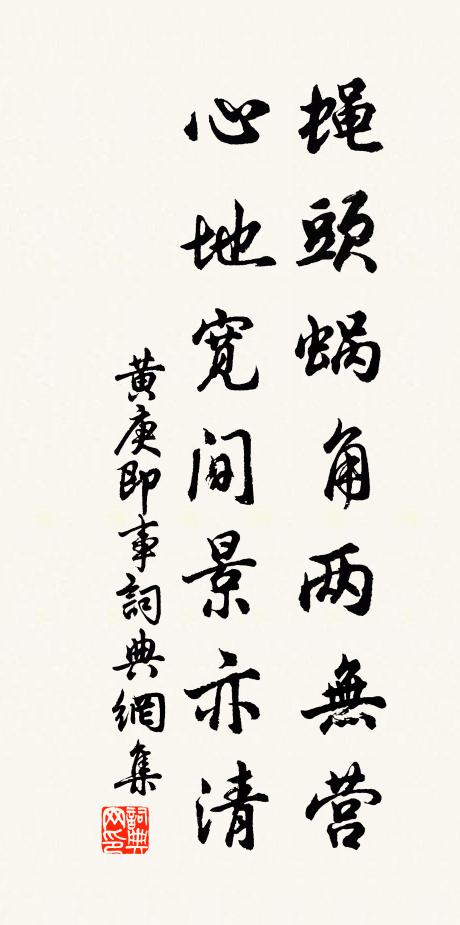 蝇頭蜗角两無营
心地宽间景亦清
黄庚即事詞典網集
詞典网